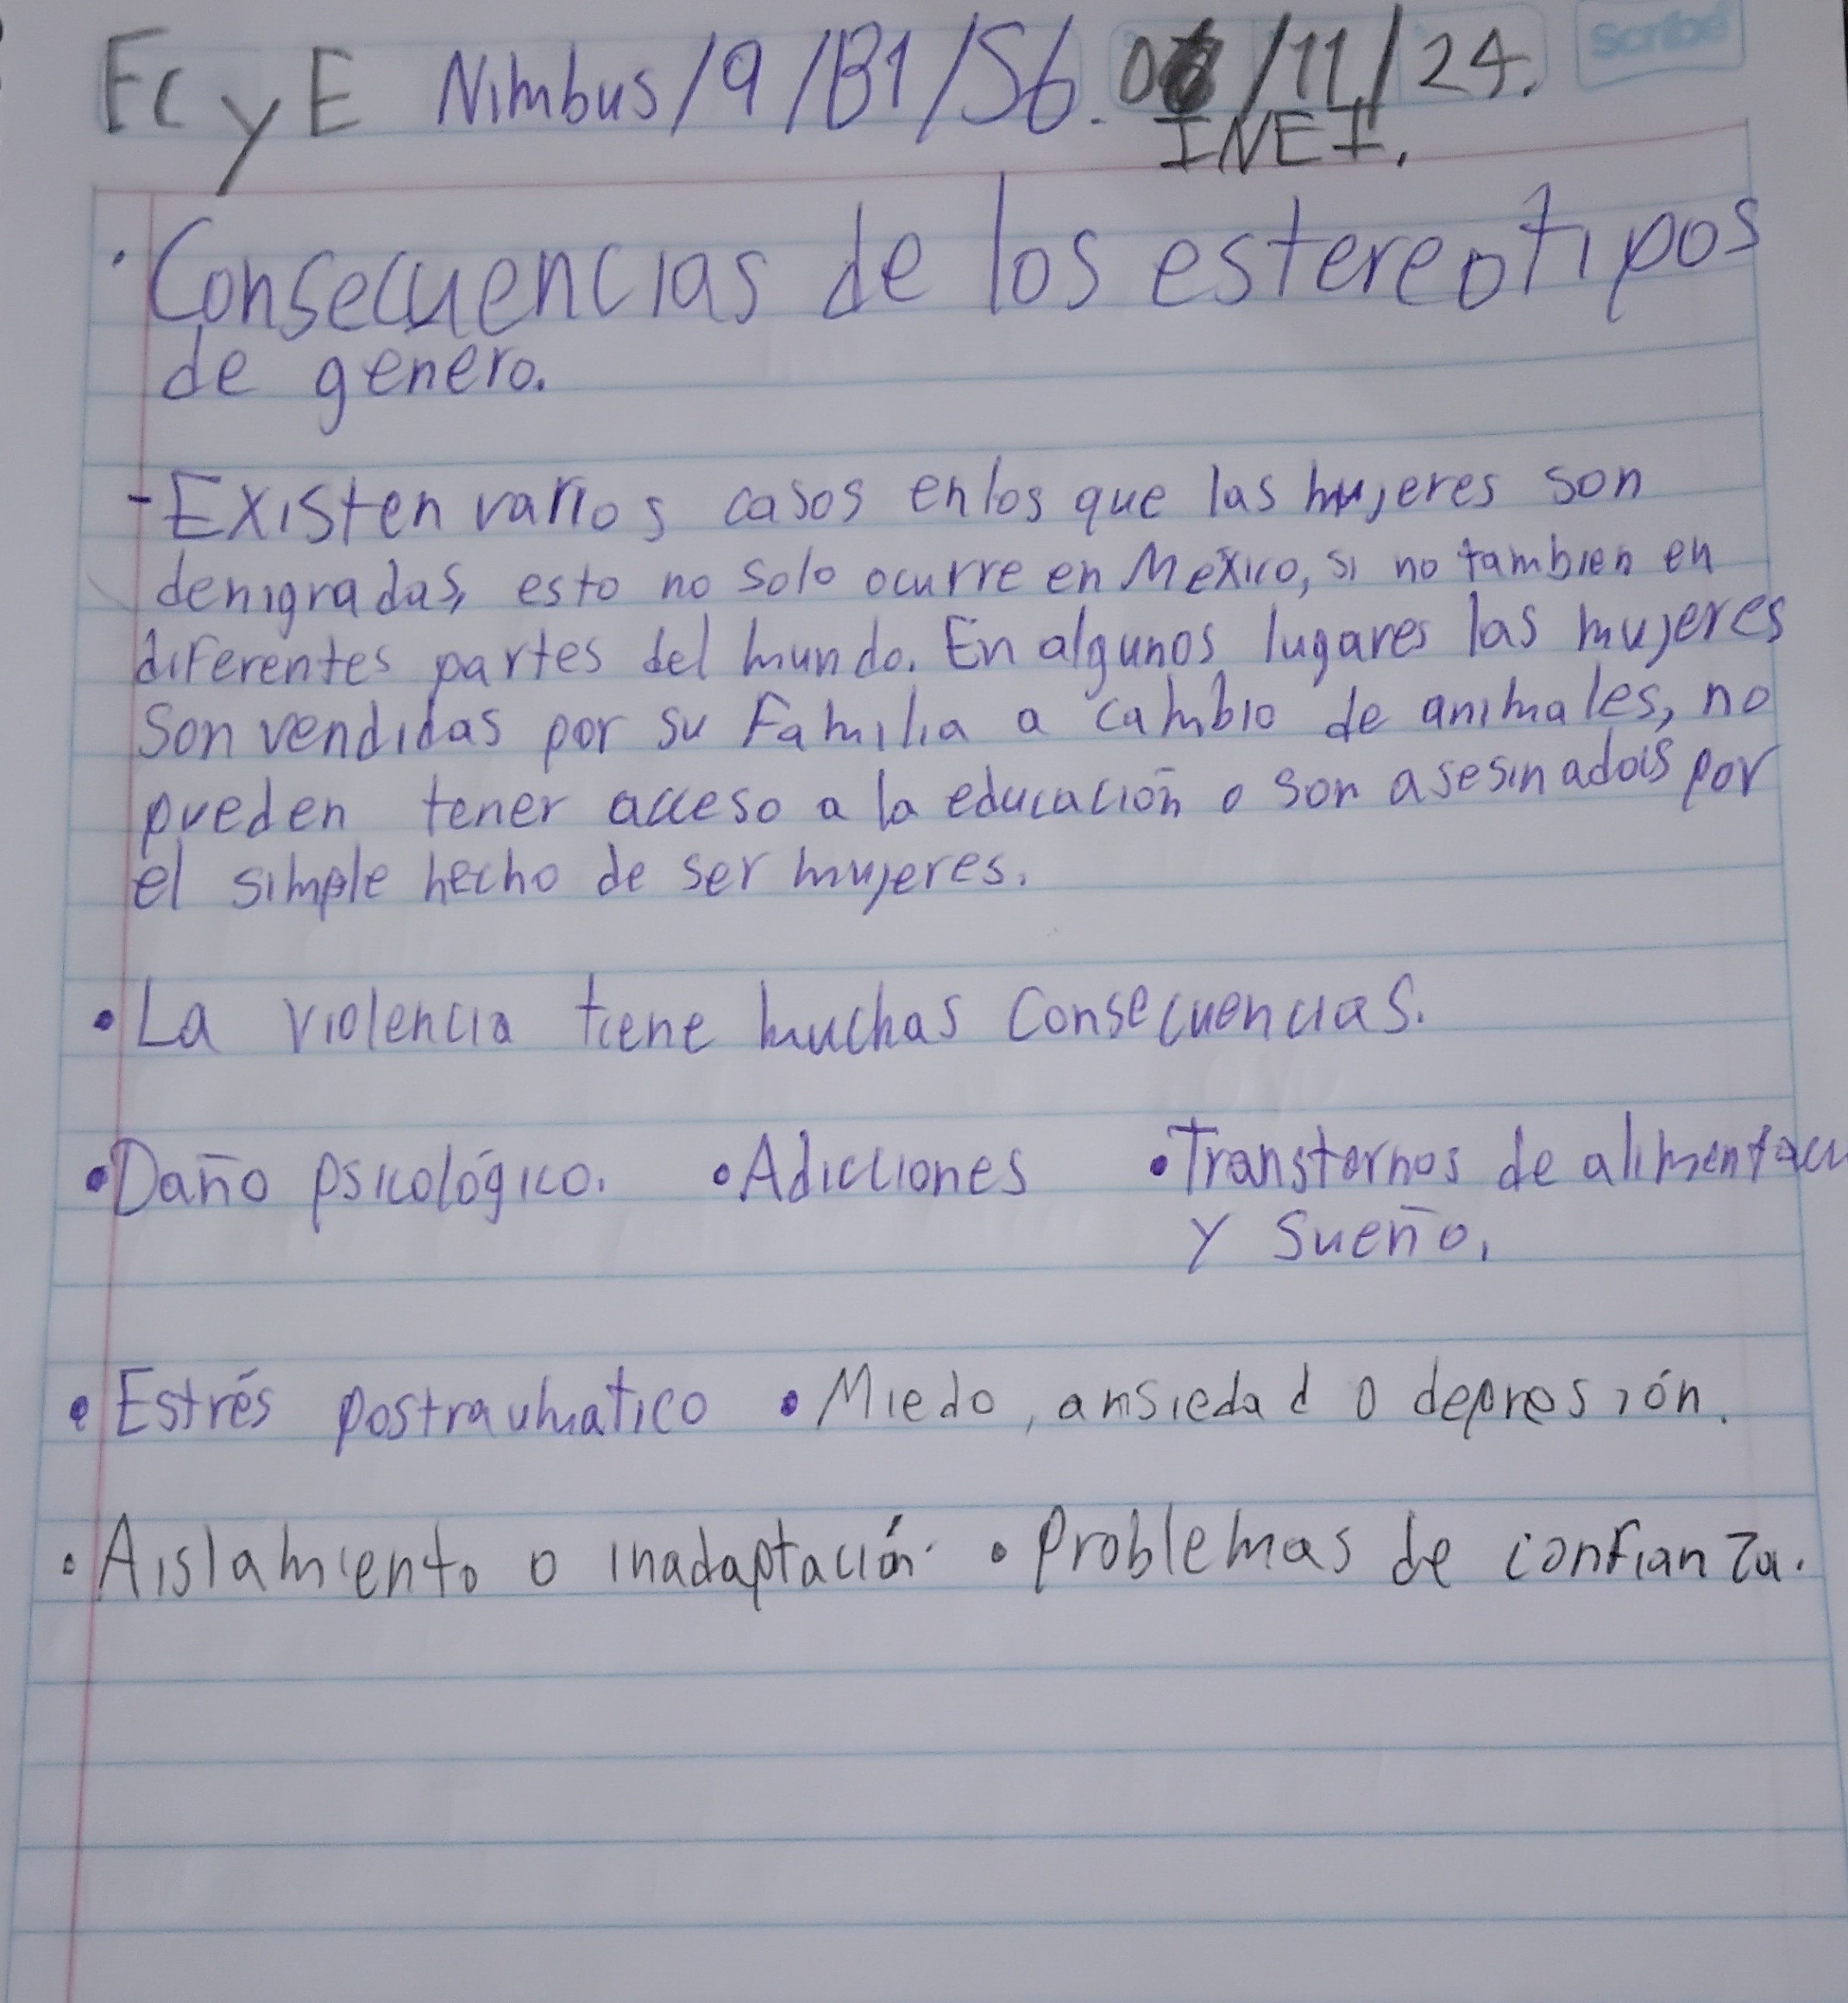 FC y E Nimbus/9/B1/S6. /11/24.
Scribe
INEI.
· Consecuencias de los estereotipos
de genero.
- Existen varios casos en los que las mujeres son
denigradas, esto no solo ocurre en Mexico, si no tambien en
diferentes partes del mundo. En algunos lugares las mujeres
son vendidas por su Familia a cambio de animales, no
pueden tener acceso a la educación o son por
el simple hecho de ser mujeres.
• La violencia tiene muchas consecuencias.
• Daño psicológico. • Adicciones • Transtornos de alimentaci
y sueño.
• Estrés postraumatico • Miedo, ansiedad o depresión.
• Aislamiento o inadaptación. • Problemas de confianza.